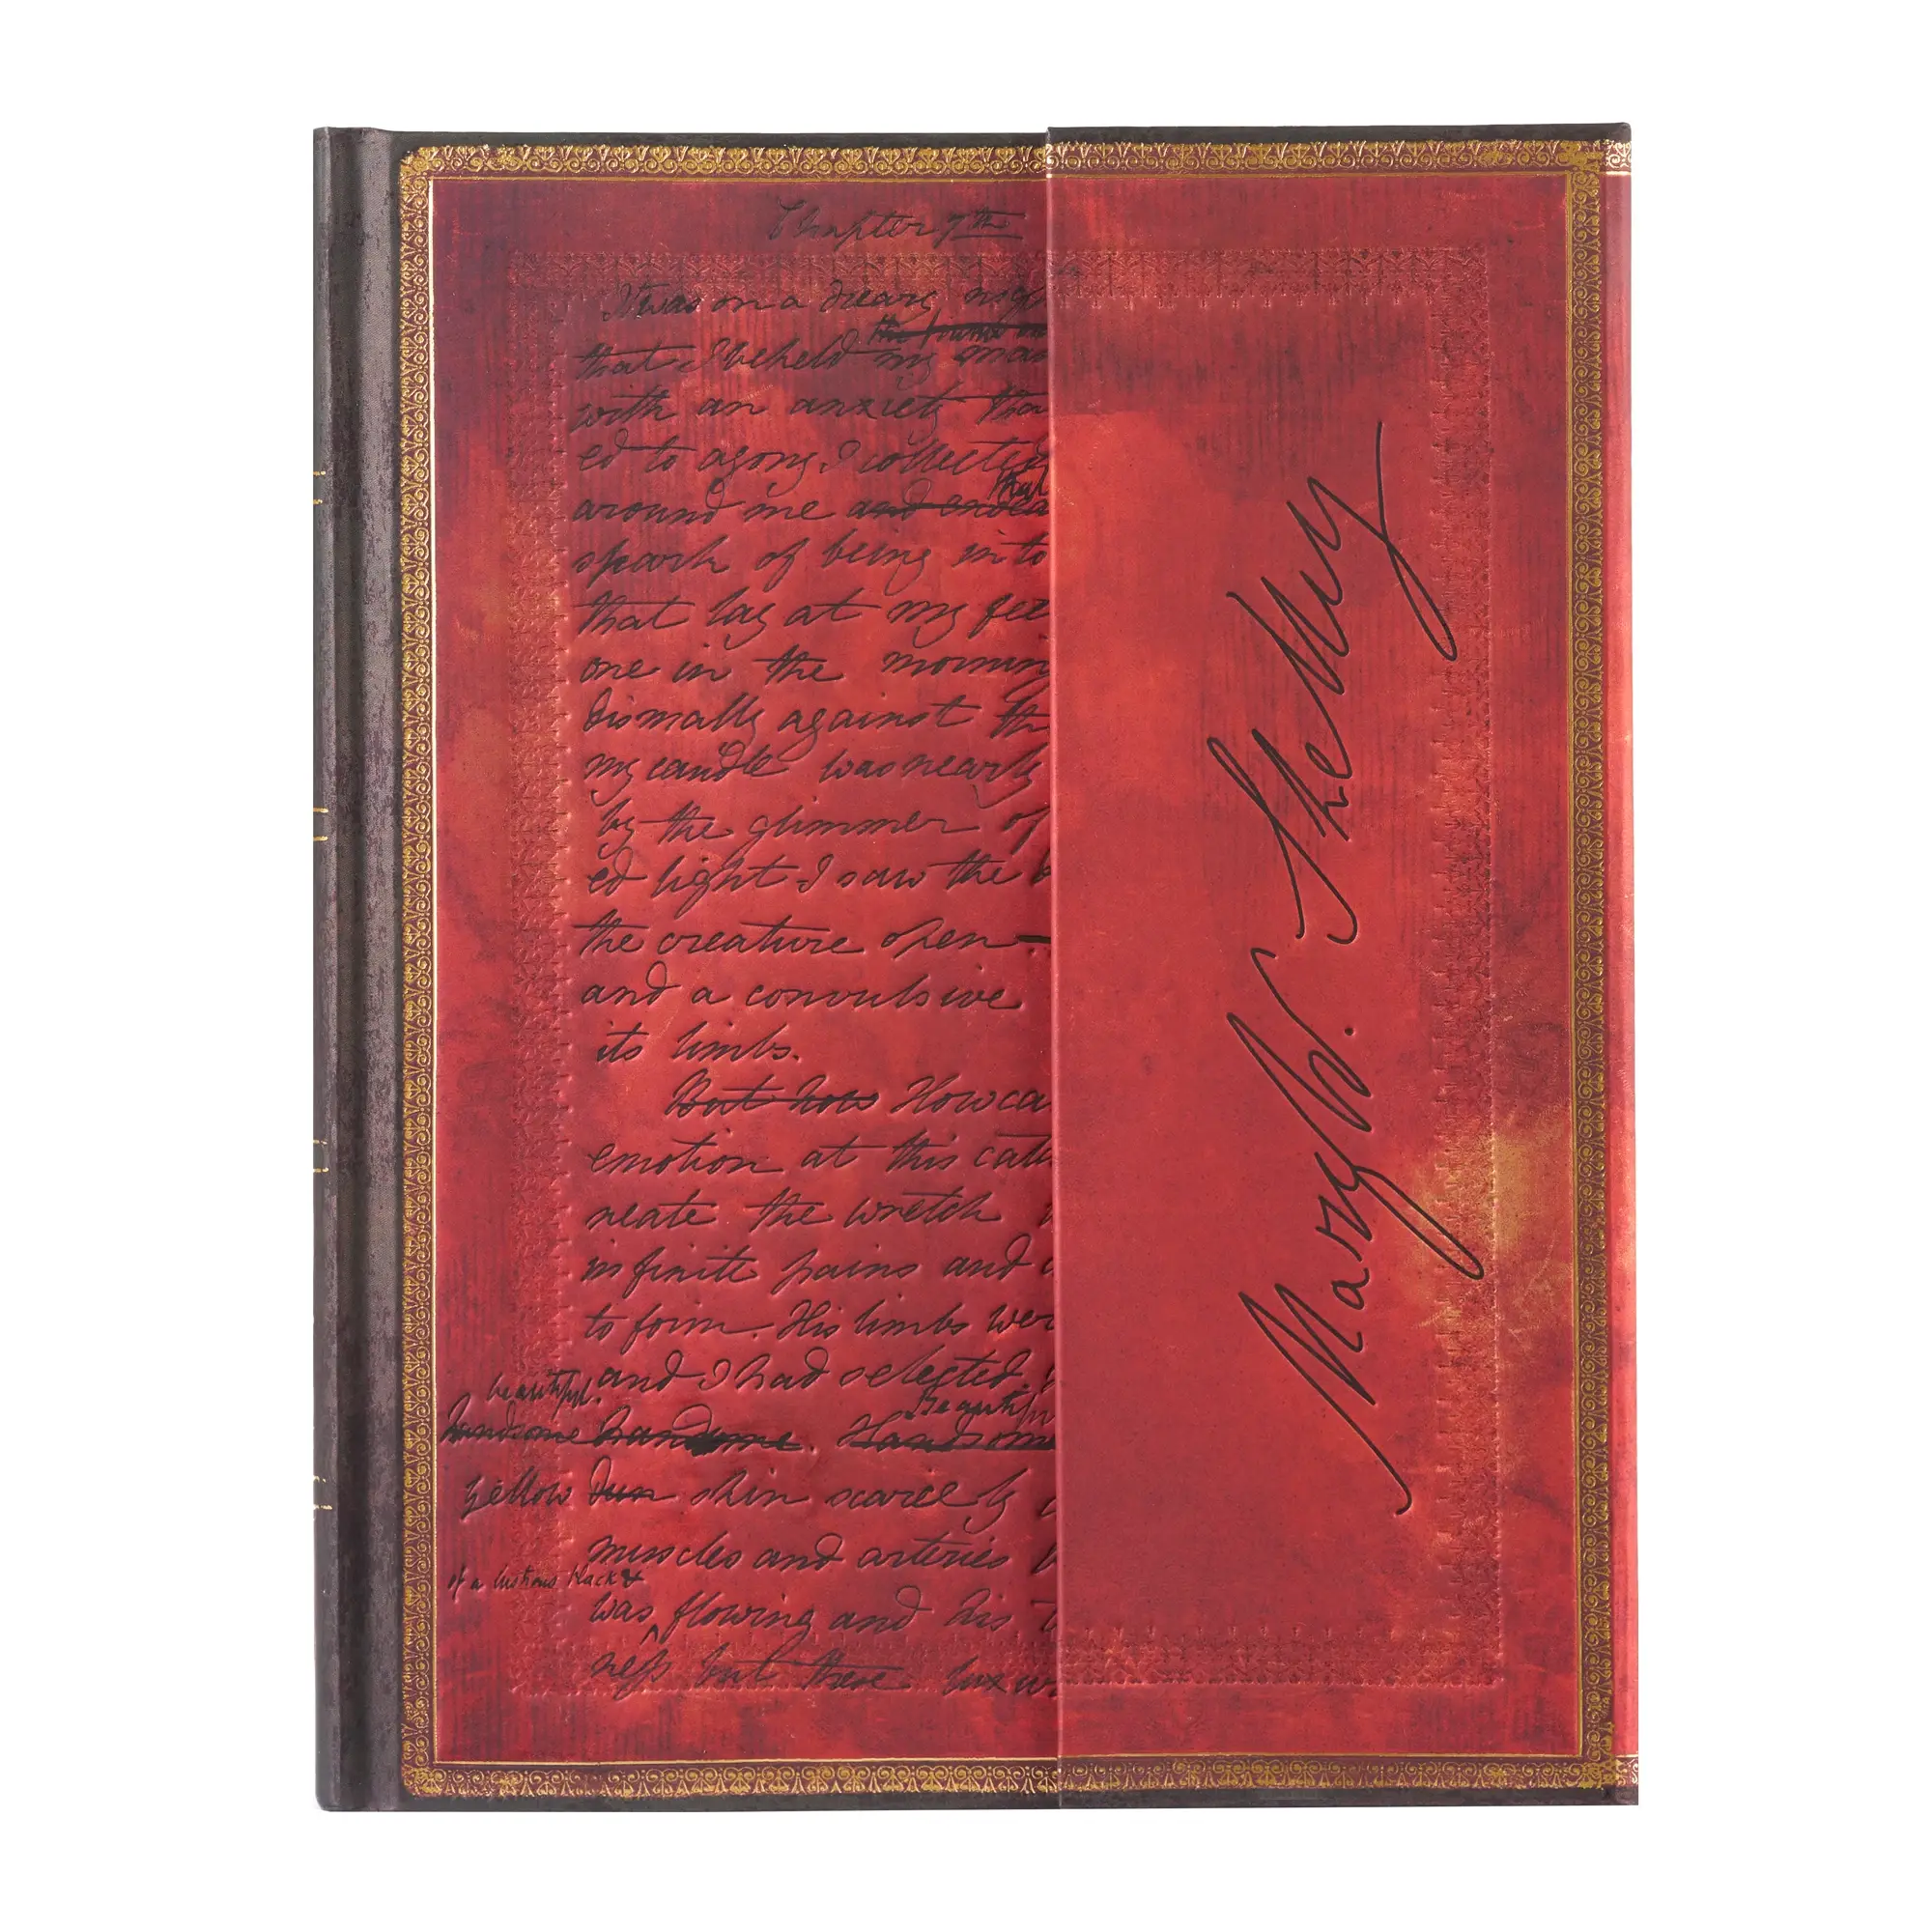 Chapter 7th
It was on a dreary nig
the frame on
that I beheld my man
with an anxiety that
ed to agony I collected
that
around me and endea
spark of being into
that lay at my fee
one in the mornin
dismally against th
my candle was nearly
by the glimmer of
ed light I saw the
the creature open
and a convulsive
its limbs.
But how How ca
emotion at this cata
neate the wretch
infinite pains and
to form. His limbs wer
and I had selected
beautiful. Beautifu
handsome handsome. Handsome
yellow dun skin scarcely
muscles and arteries
of a lustrous black &
was flowing and his t
ness but these luxu
Mary W. Shelley